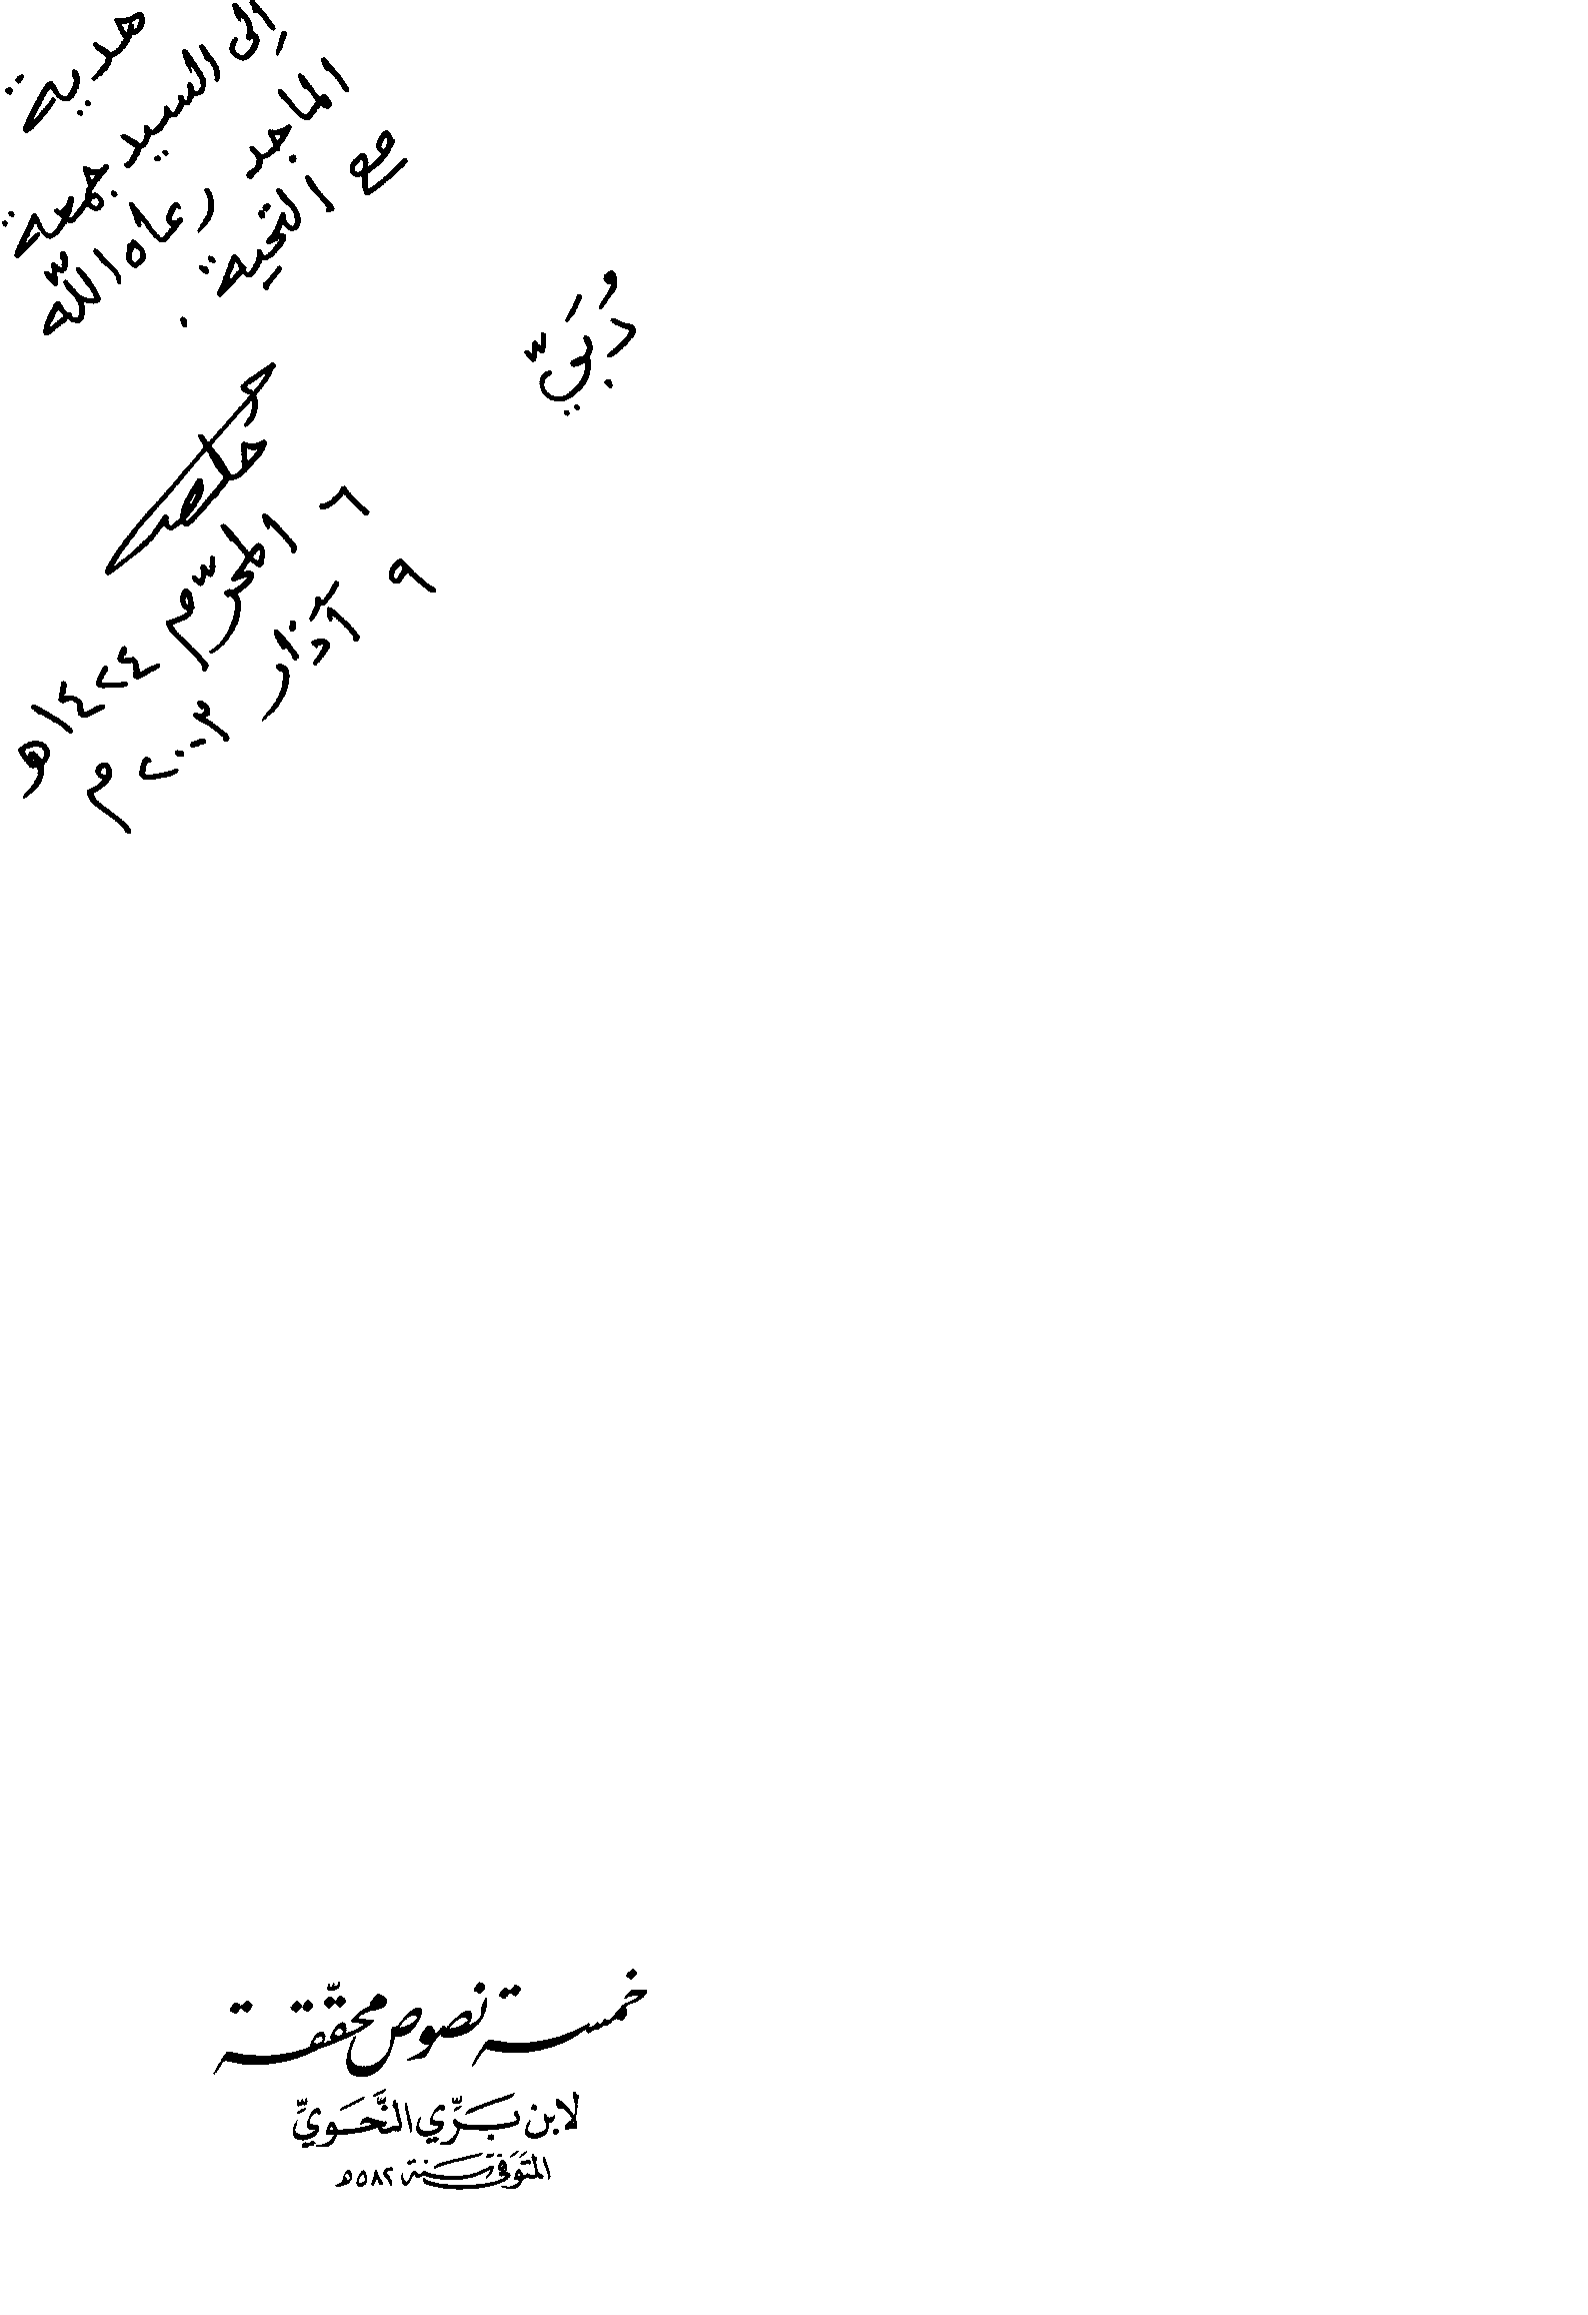 هدية
إلى السيد جمعة
الماجد رعاه الله
مع التحية .
دُبَيّ
٦ المحرّم ١٤٢٤هـ
٩ آذار ٢٠٠٣م
خمسة نصوص محقّقة
لابن بَرِّي النَّحَويِّ
المتَوَفَّى سَنة ٥٨٢هـ